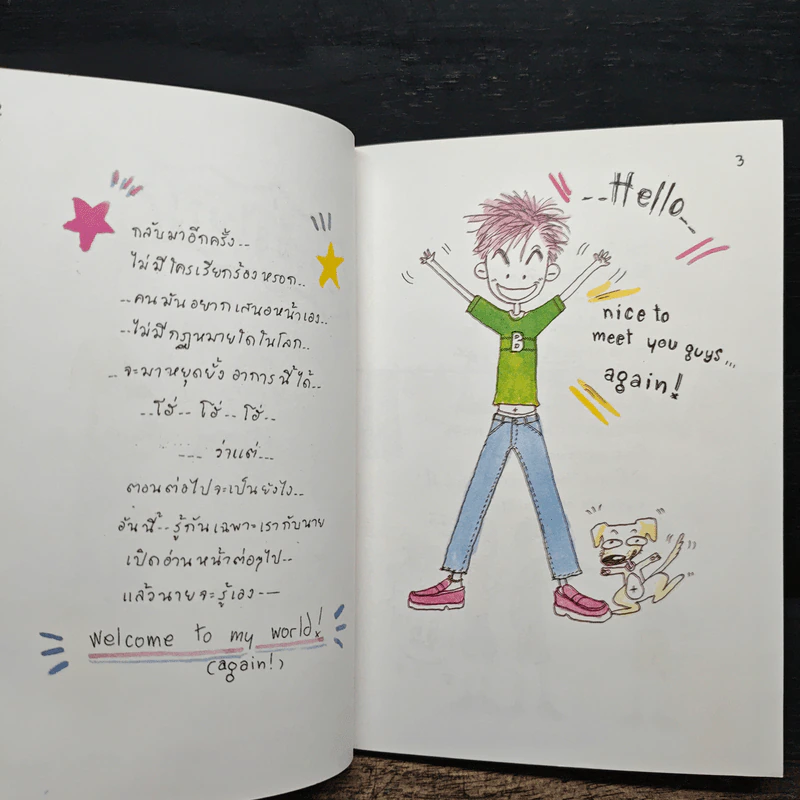 กลับมาอีกครั้ง..
ไม่มีใครเรียกร้องหรอก..
..คนมันอยากเสนอหน้าเอง..
..ไม่มีกฎหมายใดในโลก..
..จะมาหยุดยั้งอาการนี้ได้..
..โฮ่.. โฮ่.. โฮ่..
.... ว่าแต่...
ตอนต่อไปจะเป็นยังไง..
อันนี้..รู้กันเฉพาะเรากับนาย
เปิดอ่านหน้าต่อๆไป..
แล้วนายจะรู้เอง--
Welcome to my world!
(again!)
3
..Hello..
nice to
meet you guys...
again!
B